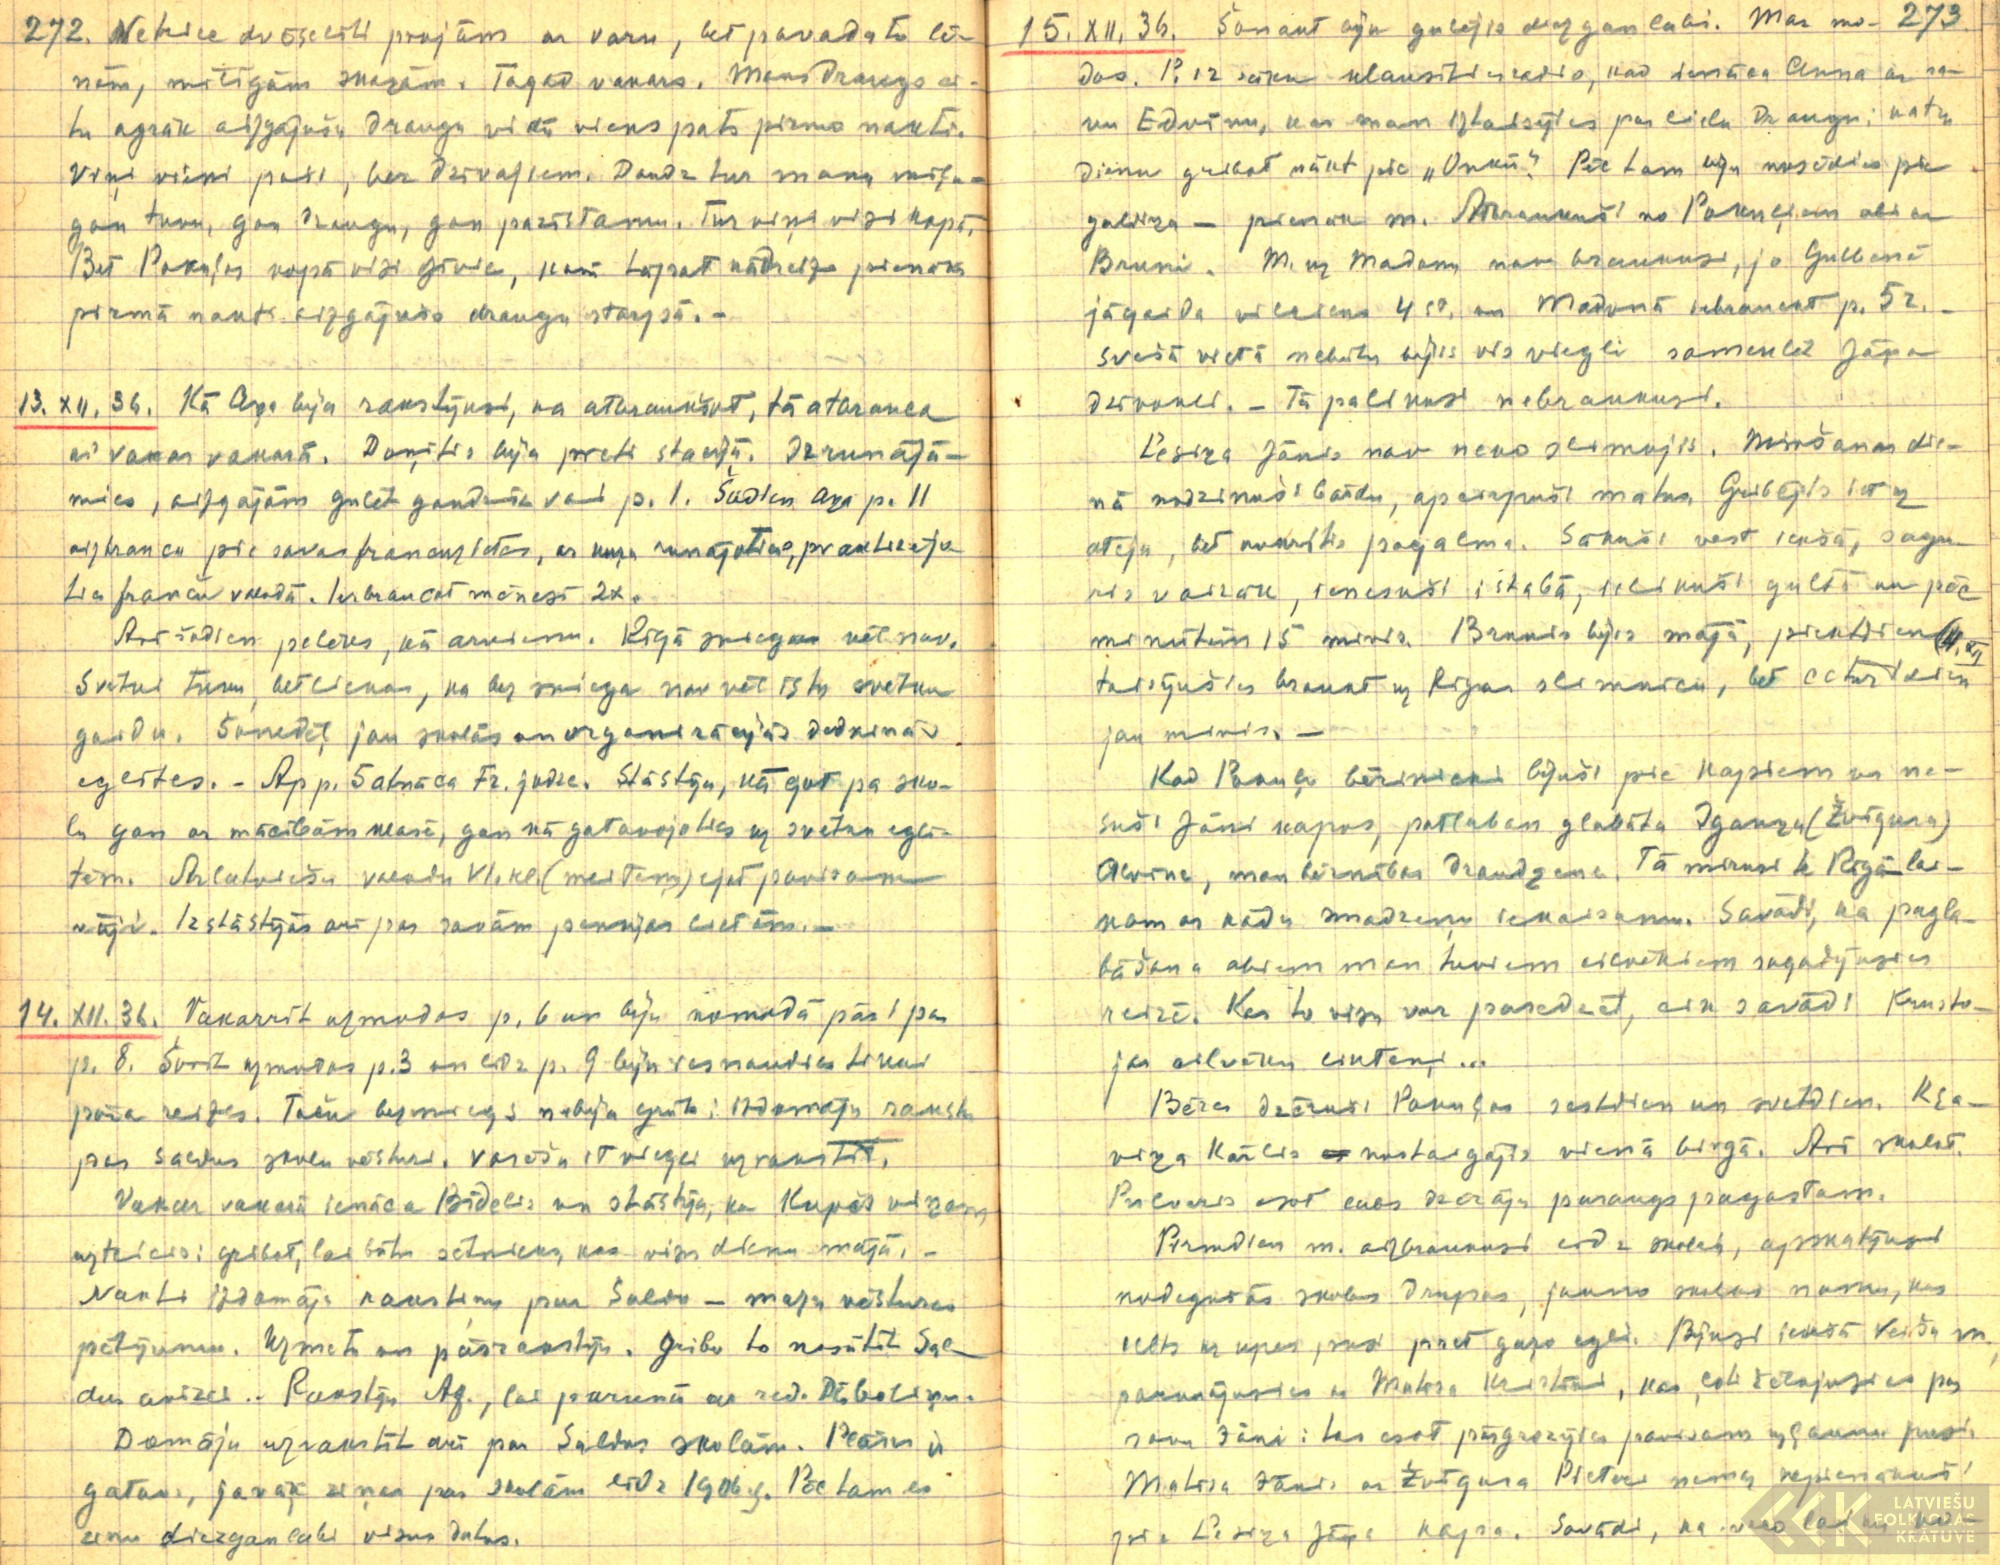 272. Netrice dvēselīti projām ar varu, bet pavada to lē-
nām, mīlīgām skaņām. Tagad vakars. Mans Draugs ci-
tu agrāk aizgājušu draugu vidū viens pats pirmo nakti.
Viņi visi paši, bez dzīvajiem. Daudz tur manu mīļu-
gan tuvu, gan draugu, gan pazīstamu. Tur viņi visi kopā,
Bet Pakuļos kopā visi dzīvie, kam tāpat kādreiz pienāks
pirmā nakti aizgājušo draugu starpā. -
13. XII. 36. Kā Aga bija rakstījusi, ka atbraukšot, tā atbrauca
arī vakar vakarā. Doņītis bija pretī stacijā. Izrunājā-
mies, aizgājām gulēt gandrīz vai p. 1. Šodien Aga p. 11
aizbrauca pie savas francūzietes, ar kuru runājoties, praktizēju-
ties franču valodā. Iebraucot mēnesī 2x.
Arī šodien pelēks, kā arvienu. Rīgā sniega vēl nav.
Svētki tuvu, bet liekas, ka bez sniega nav vēl īstu svētku
gaidu. Šonedēļ jau skolās un organizācijās dedzinās
eglītes. - Ap p. 5 atnāca Fr. Stāstīja, kā ejot pa sko-
lu gan ar mācībām klasē, gan kā gatavojoties uz svētku eglī-
tēm. Ar latviešu valodu VI. kl (meiteņu) ejot pavisam
vāji. Izstāstījās arī par savām pensijas lietām. -
14. XII. 36. Vakarrīt uzmodos p. 6 un biju nomodā pāri par
p. 8. Šorīt uzmodos p. 3 un līdz p. 9 biju iesnaudies tikai
pāra reizes. Taču bezmiegs nebija grūts: izdomāju rakstu
par Saldus skolu vēsturi. Varēšu it viegli uzrakstīt.
Vakar vakarā ienāca Bīdelis un stāstīja, ka Kupčs viņam
uzteicis: gribot, lai būtu sētnieks, kas visu dienu mājā. -
Nakti izdomāju rakstiņu par Saldu - mazu vēstures
pētījumu. Uzmetu un pārrakstīju. Gribu to nosūtīt Sal-
dus avīzei. - Rakstīju Ag., lai parunā ar red. Dāboliņu.
Domāju uzrakstīt arī par Saldus skolām. Plāns ir
gatavs, jāvāc ziņas par skolām līdz 1906. g. Pēc tam es
zinu diezgan labi visus datus.
15. XII. 36. Šonakt biju gulējis diezgan labi. Maz mo- 273.
dos. P. 12 sāku klausīties radio, kad ienāca Anna ar sa-
vu Edvīnu, kas man iztaisījies par lielu draugu; katru
dienu gribot nākt pie „Onkū". Pēc tam biju nosēdies pie
galiņa - pienāk m. Atbraukuši no Pakuļiem abi ar
Bruni. M. uz Madonu nav braukusi, jo Gulbenē
jāgaida vilciens 4 st. un Madonā iebraucot p. 5 r. -
Svešā vietā nebūtu bijis viegli sameklēt Jāņa
dzīvokli. - Tā palikusi nebraukusi.
Lesiņa Jānis nav neko slimojis. Miršanas die-
nā nodzinuši bārdu, apcirpuši matus. Gribējis iet uz
ateju, bet nokritis pagalmā. Sākuši vest iekšā, sagu-
ris vairāk, ienesuši istabā, ielikuši gultā un pēc
minūtēm 15 miris. Brunis bijis mājā, piektdien (11. XII)
taisījušies braukt uz Rīgas slimnīcu, bet ceturtdien
jau miris. -
Kad Pakuļu bērinieki bijuši pie kapsiem un ne-
suši Jāni kapos, patlaban glabāta Igauņu (Žvīguru)
Alvīne, man bērnības draudzene. Tā mirusi te Rīgā lai-
kam ar kādu smadzeņu iekaisumu. Savādi, ka pagla-
bāšana abiem man tuviem cilvēkiem sagadījusies
reizē. Kas to visu var paredzēt, cik savādi krusto-
jas cilvēku likteņi...
Bēres dzēruši Pakuļos sestdien un svētdien. Kļa-
viņa Kārlis nostaigājis vienā birgā. Arī skolot.
Pulveris esot labs dzērāju paraugs pagastam.
Pirmdien m. aizbraukusi līdz skolai, apskatījusi
nodegušās skolas drupas, jauno skolas namu, kas
celts uz upes pusi pret gaŗo egli. Bijusi iekšā
parunājusies ar Matisa Kristīni, kas ļoti žēlojusies par
savu Jāni: tas esot pārgrozījies pavisam uz ļaunu pusi.
Matisa Jānis ar Žvīgura Pēteri nemaz nepienākuši
pie Lesiņa Jāņa kapa. Savādi, ka
LATVIEŠU
FOLKLORAS
KRĀTUVE